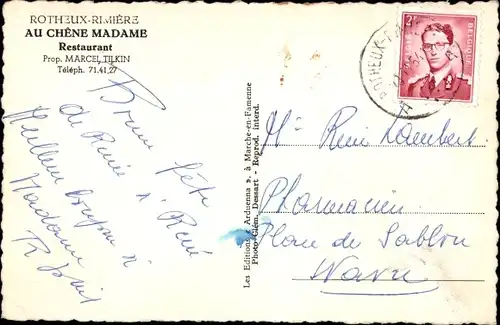 ROTHEUX-RIMIÈRE
AU CHÊNE MADAME
Restaurant
Prop. MARCEL TILKIN
Téléph. 71.41.27
Bonne fête
de Renée
à René
Meilleur
Madame
Les Editions « Arduenna », à Marche-en-Famenne
Photo Clém. Dessart - Reprod. interd.
2F
BELGIQUE
ROTHEUX-R
Mr René Lambert
Pharmacien
Place du Sablon
Wavre